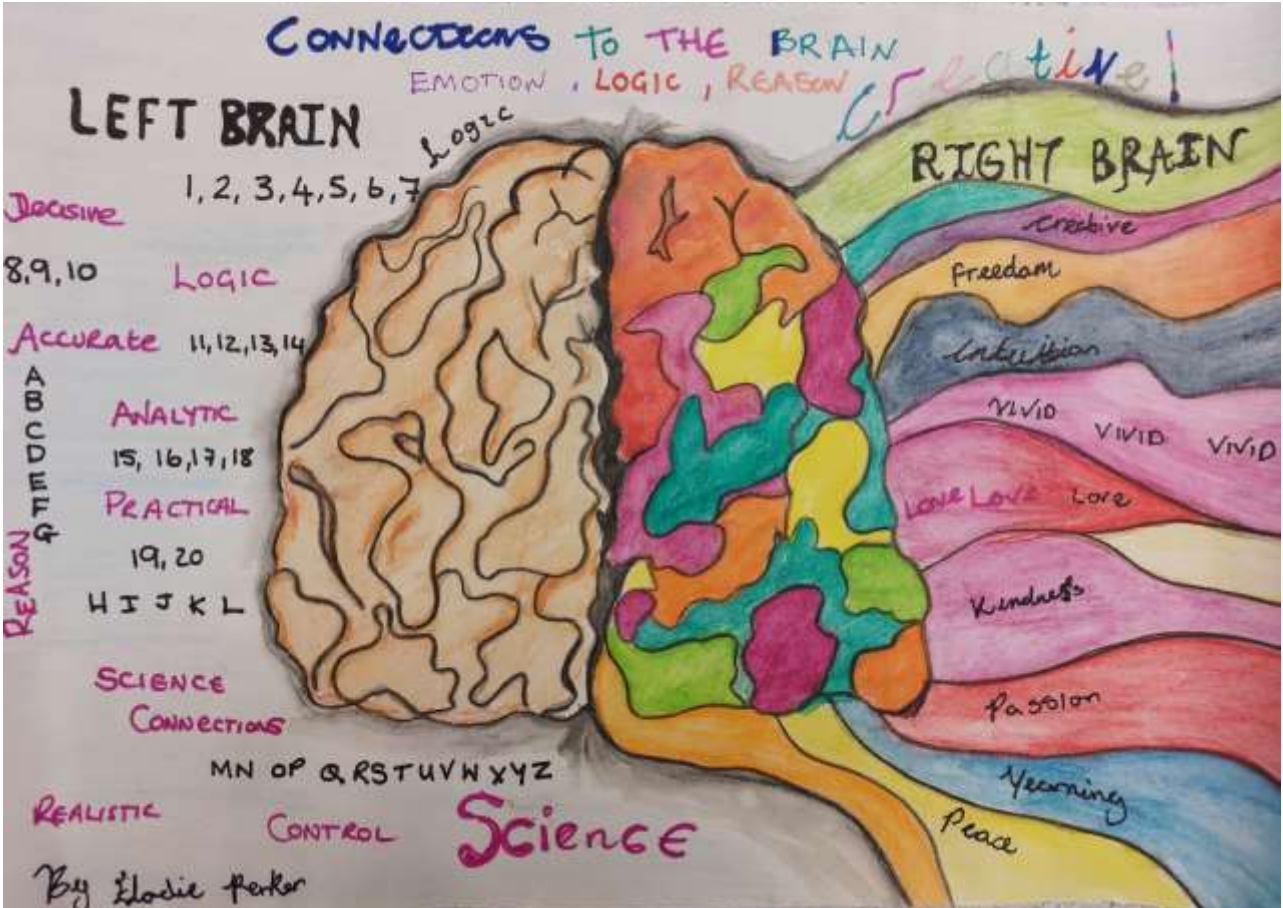 CONNECTIONS TO THE BRAIN
EMOTION, LOGIC, REASON
Creative!
LEFT BRAIN
Logic
RIGHT BRAIN
1, 2, 3, 4, 5, 6, 7
Decisive
8, 9, 10
LOGIC
Accurate
11, 12, 13, 14
A
B
C
D
E
F
G
ANALYTIC
15, 16, 17, 18
PRACTICAL
19, 20
REASON
H I J K L
SCIENCE
CONNECTIONS
MN OP QRSTUVWXYZ
REALISTIC
CONTROL
SCiencE
By Elodie Parker
Creative
Freedom
Intuition
VIVID VIVID VIVID
LOVE LOVE Love
Kindness
Passion
Yearning
Peace